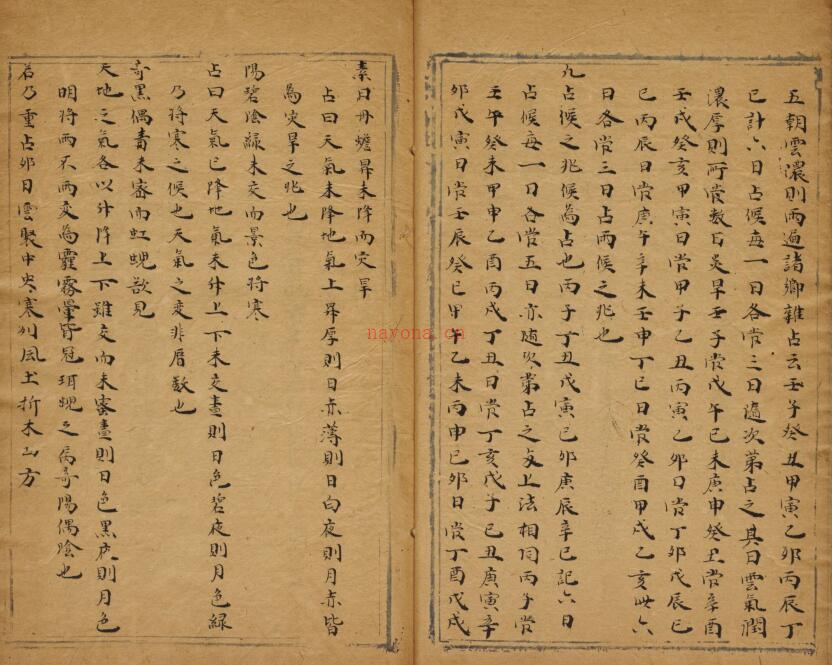 五朝雲濃則雨遍諸鄉雜占云壬子癸丑甲寅乙卯丙辰丁
巳計六日占候每一日各管三日隨次第占之其日雲氣潤
濃厚則所管數日災旱壬子管戊午己未庚申癸丑管辛酉
壬戌癸亥甲寅日管甲子乙丑丙寅乙卯日管丁卯戊辰己
巳丙辰日管庚午辛未壬申丁巳日管癸酉甲戌乙亥此六
日各管三日占雨候之兆也
九占候之兆候為占也丙子丁丑戊寅己卯庚辰辛巳記六日
占候每一日各管五日亦隨次第占之與上法相同丙子管
壬午癸未甲申乙酉丙戌丁丑日管丁亥戊子己丑庚寅辛
卯戊寅日管壬辰癸巳甲午乙未丙申己卯日管丁酉戊戌
素日丹蟾昇未降而災旱
占曰天氣未降地氣上昇厚則日赤薄則日白夜則月赤皆
為災旱之兆也
陽碧陰綠未交而景色將寒
占曰天氣已降地氣未升上下未交晝則日色碧夜則月色緑
乃將寒之候也天氣之変非曆数也
奇黑偶青未密而虹蜺欲見
天地之氣各以升降上下雖交而未密晝則日色黑夜則月色
明將雨不雨变為霾霧暈背冠珥蜺之属奇陽偶陰也
若乃重占卯日雲聚中央寒列風土折木山方
navona.cn